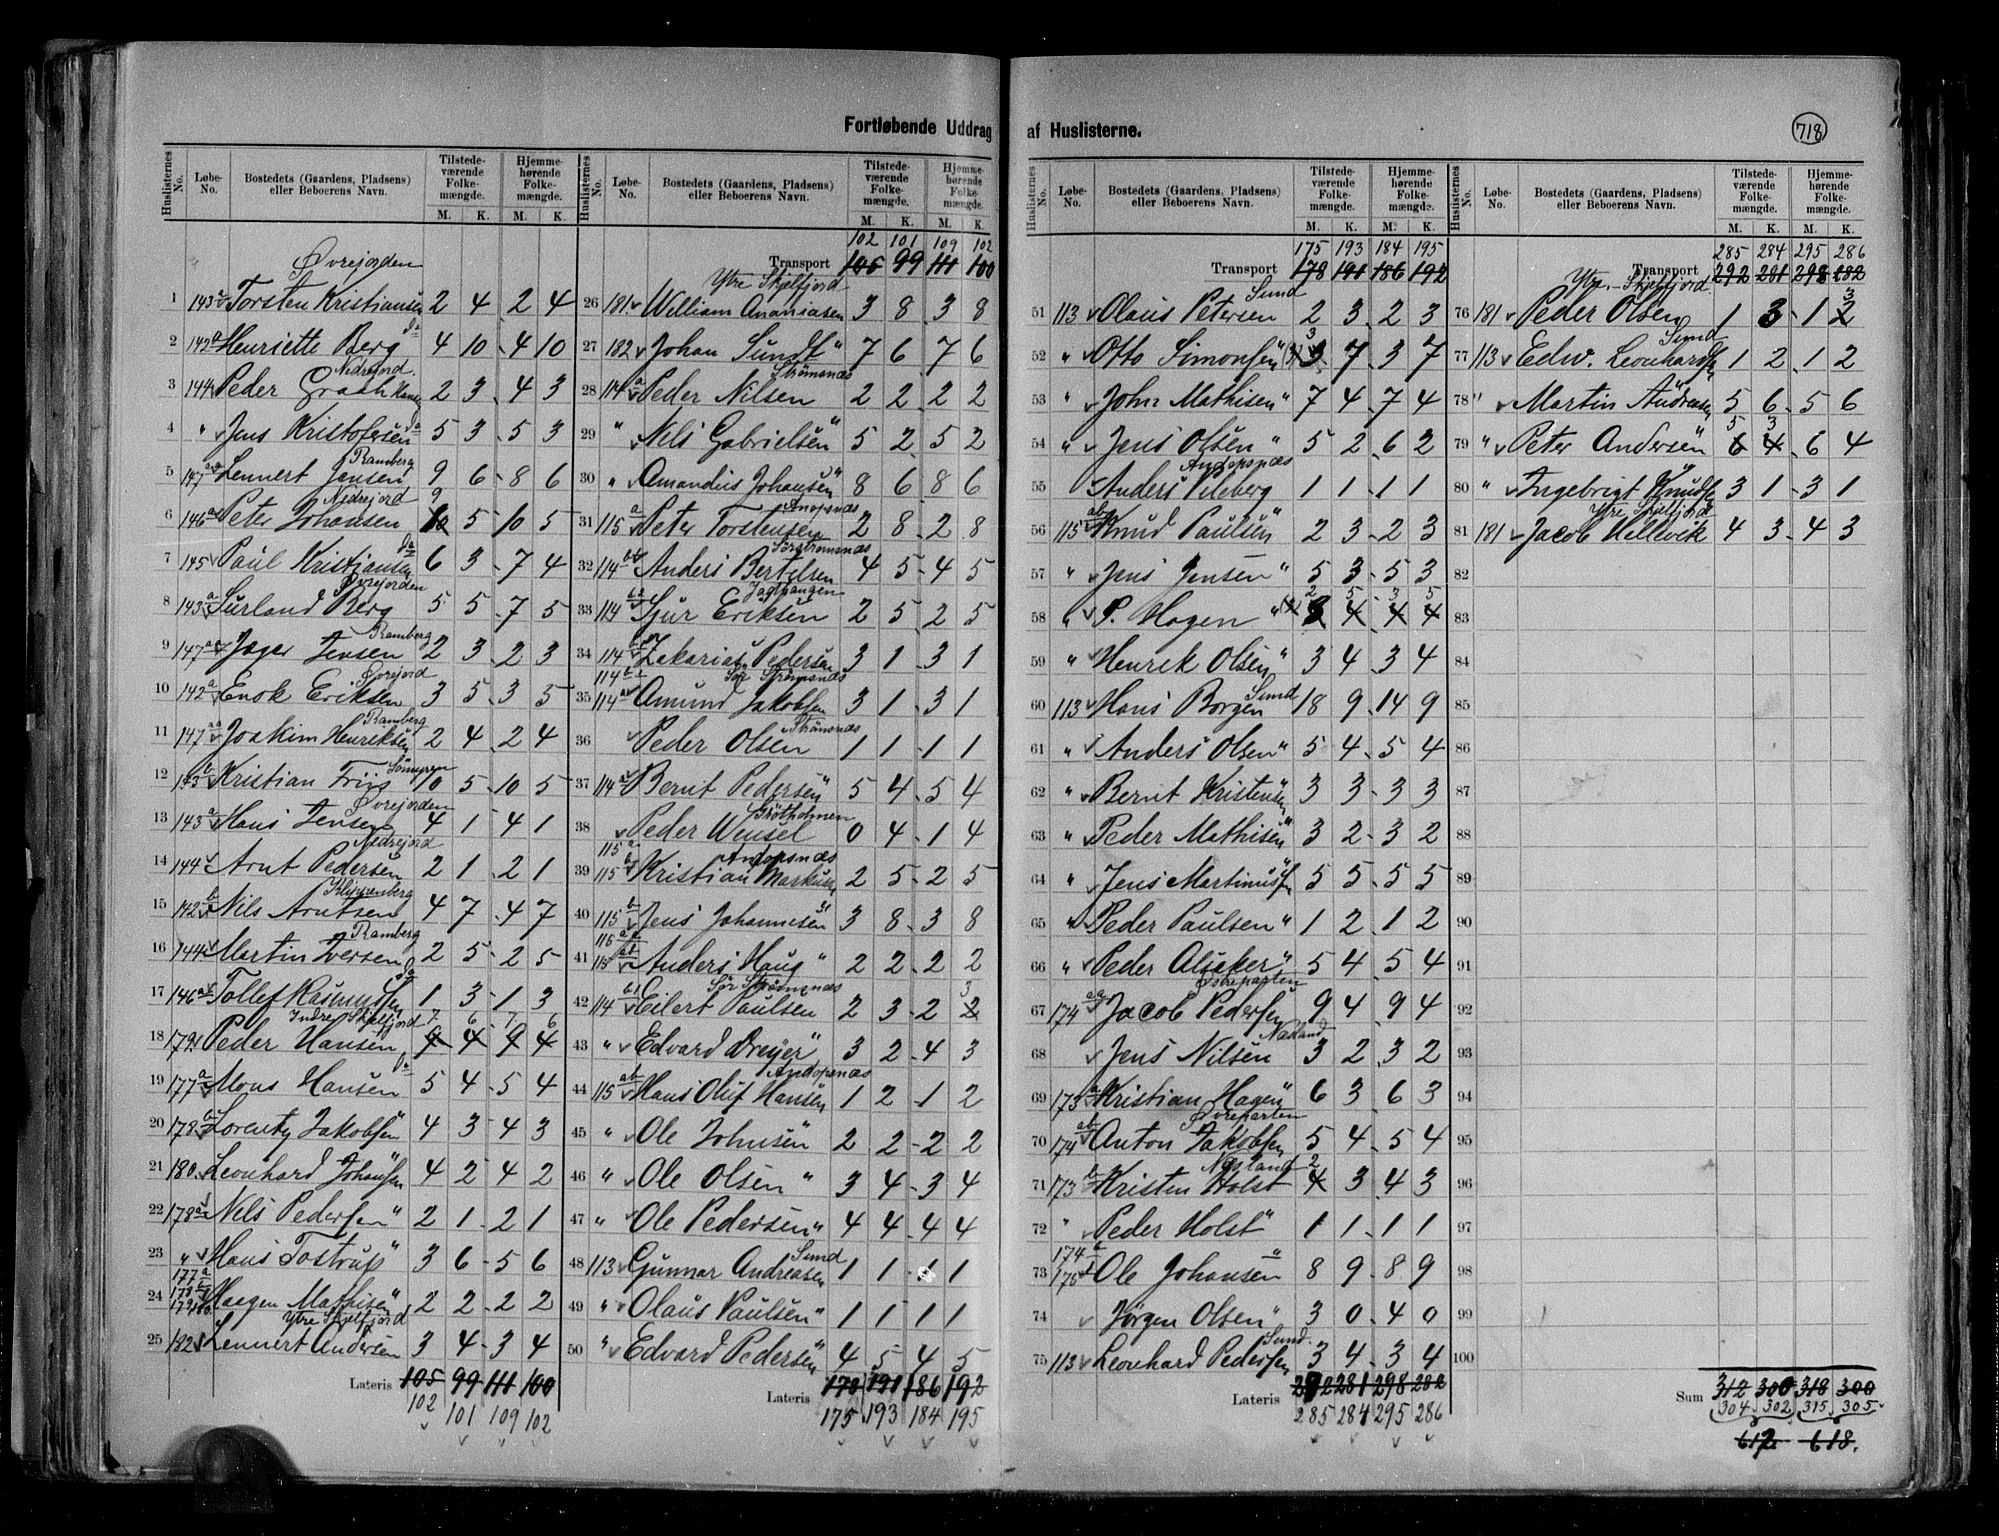 Fortløbende Uddrag af Huslisterne.
718
Huslisternes No. Løbe-No. Bostedets (Gaardens, Pladsens) eller Beboerens Navn. Tilstede-værende Folke-mængde. Hjemme-hørende Folke-mængde.
M. K. M. K.
Øvrejorden
1 143 a Torsten Kristiansen 2 4 2 4
2 142 a Henriette Berg do 4 10 4 10
Nedrejord.
3 144 Peder Graah Hansen 2 3 4 3
4 " Jens Kristofersen do 5 3 5 3
Ramberg
5 147 aa Lennert Jensen 9 6 8 6
Nedrejord 9
6 146 a Peter Johansen 10 5 10 5
7 145 Paul Kristiansen do 6 3 7 4
Øvrejorden
8 143 a Surland Berg 5 5 7 5
Ramberg
9 147 a Jæger Jensen 2 3 2 3
Øvrejord
10 142 a Enok Eriksen 3 5 3 5
Ramberg
11 147 aa Joakim Henriksen 2 4 2 4
12 173 b Kristian Friis 10 5 10 5
Øvrejorden
13 143 a Hans Jensen 4 1 4 1
Nedrejord
14 144 Arnt Pedersen 2 1 2 1
Klippenberg
15 142 b Nils Arntsen 4 7 4 7
Ramberg
16 144 Martin Iversen 2 5 2 5
17 146 a Tollef Rasmussen do 1 3 1 3
Indre Skjelfjord 7 6 7 6
18 179 Peder Hansen 9 4 9 4
19 177 a Mons Hansen do 5 4 5 4
20 178 b Lorents Jakobsen 4 3 4 3
21 180 Leonhard Johansen 4 2 4 2
22 178 a Nils Pedersen " 2 1 2 1
23 " Hans Tostrup " 3 6 5 6
177 a
24 178 b 179 180 Haagen Mathisen " 2 2 2 2
Ytre Skjelfjord
25 182 Lennert Andersen 3 4 3 4
Lateris 105 99 111 100
102 101 109 102
Huslisternes No. Løbe-No. Bostedets (Gaardens, Pladsens) eller Beboerens Navn. Tilstede-værende Folke-mængde. Hjemme-hørende Folke-mængde.
M. K. M. K.
102 101 109 102
Transport 105 99 111 100
Ytre Skjelfjord
26 181 William Ananiasen 3 8 3 8
27 182 Johan Sundt " 7 6 7 6
Strömsnæs
28 114 a Peder Nilsen 2 2 2 2
29 " Nils Gabrielsen " 5 2 5 2
30 " Amandus Johansen " 8 6 8 6
Anopsnæs
31 115 a Peter Torstensen 2 8 2 8
32 114 Anders Bertelsen 4 5 4 5
33 114 Sjur Eriksen 2 5 2 5
34 114 Zakarias Pedersen 3 1 3 1
114 Sör Strömsnæs
35 114 a Amund Jakobsen 3 1 3 1
Strömsnæs
36 Peder Olsen 1 1 1 1
37 114 a Bernt Pedersen " 5 4 5 4
38 Peder Wensel 0 4 1 4
115 a Andopsnæs
39 115 b Kristian Markusen 2 5 2 5
40 115 b Jens Johannesen " 3 8 3 8
116 a
41 115 ab Anders Haug " 2 2 2 2
Sör Strömsnæs 3
42 114 Eilert Paulsen 2 3 2 2
43 " Edvard Dreyer " 3 2 4 3
Andopsnæs
44 115 ab Hans Oluf Hansen 1 2 1 2
45 " Ole Johnsen " 2 2 2 2
46 " Ole Olsen " 3 4 3 4
47 " Ole Pedersen " 4 4 4 4
Sund
48 113 Gunnar Andreasen 1 1 1 1
49 " Olaus Paulsen " 1 1 1 1
50 " Edvard Pedersen " 4 5 4 5
Lateris 178 191 186 192
175 193 184 195
Huslisternes No. Løbe-No. Bostedets (Gaardens, Pladsens) eller Beboerens Navn. Tilstede-værende Folke-mængde. Hjemme-hørende Folke-mængde.
M. K. M. K.
175 193 184 195
Transport 178 191 186 192
Sund
51 113 Olaus Petersen 2 3 2 3
52 " Otto Simonsen " 3 7 3 7
53 " John Mathisen " 7 4 7 4
54 " Jens Olsen " 5 2 6 2
Andopsnæs
55 Anders Pileberg 1 1 1 1
56 115 ab Knud Paulsen " 2 3 2 3
57 " Jens Jensen " 5 3 5 3
2 5 3 5
58 " P. Hagen " 3 4 4 4
59 " Henrik Olsen " 3 4 3 4
60 113 Hans Borgen Sund 18 9 14 9
61 " Anders Olsen " 5 4 5 4
62 " Bernt Kristensen " 3 3 3 3
63 " Peder Mathisen " 3 2 3 2
64 " Jens Martinussen " 5 5 5 5
65 " Peder Paulsen " 1 2 1 2
66 " Peder Alsaker " 5 4 5 4
67 174 aa Jacob Pedersen 9 4 9 4
Næsland
68 Jens Nilsen 3 2 3 2
69 173 a Kristian Hagen " 6 3 6 3
Øvreparten
70 174 ab Anton Jakobsen 5 4 5 4
Næsland 2
71 173 b Kristen Holst 4 3 4 3
72 " Peder Holst " 1 1 1 1
174 b
73 175 Ole Johansen " 8 9 8 9
74 Jørgen Olsen " 3 0 4 0
Sund.
75 113 Leonhard Pedersen 3 4 3 4
Lateris 292 281 298 282
285 284 295 286
Huslisternes No. Løbe-No. Bostedets (Gaardens, Pladsens) eller Beboerens Navn. Tilstede-værende Folke-mængde. Hjemme-hørende Folke-mængde.
M. K. M. K.
285 284 295 286
Transport 292 281 298 282
Ytre Skjelfjord. 3
76 181 Peder Olsen 1 3 1 2
Sund
77 113 Edw. Leonhardsen 1 2 1 2
78 " Martin Andreasen " 5 6 5 6
5 3
79 " Peter Andersen " 6 4 6 4
80 " Ingebrigt Knudsen " 3 1 3 1
Ytre Skjelfjord
81 181 Jacob Hellevik 4 3 4 3
82
83
84
85
86
87
88
89
90
91
92
93
94
95
96
97
98
99
100
Sum 312 300 318 300
304 302 315 305
612 618.